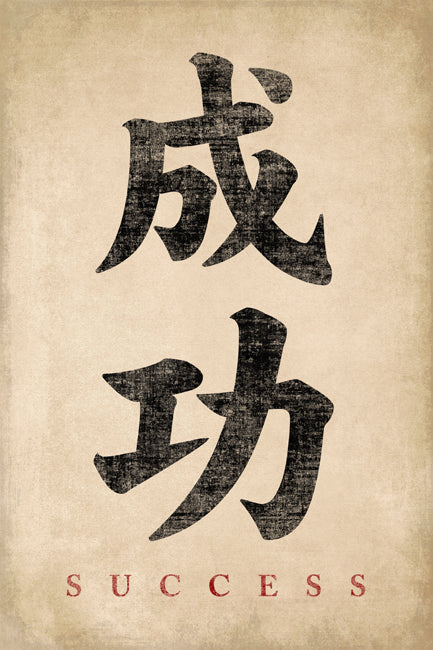 成
功
SUCCESS